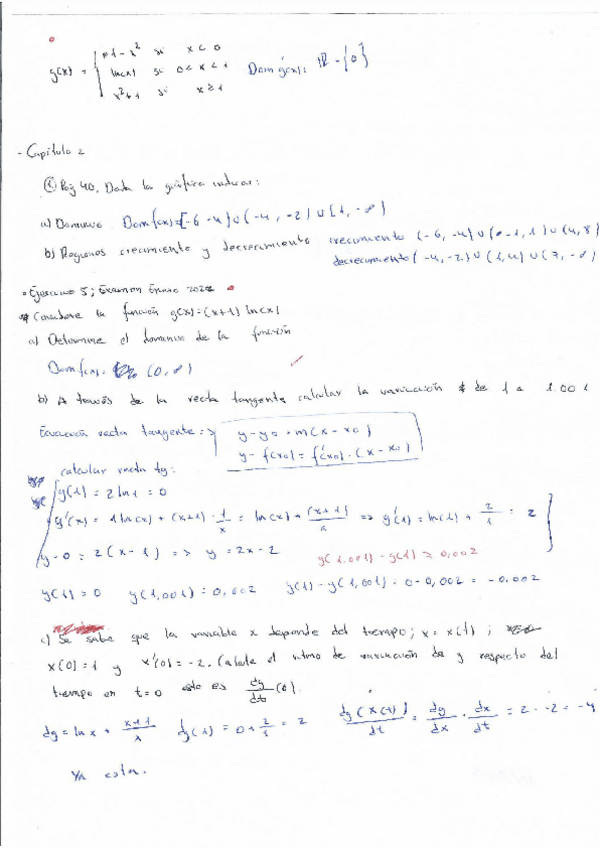 g(x) = { 1 - x² si x < 0
ln(x) si 0 < x < 1 Dom g(x): ℝ - {0}
x² + 1 si x ≥ 1
- Capitulo 2
Pág 40. Dada la gráfica indicar:
a) Dominio Dom f(x) = [-6 -4) ∪ (-4, -2) ∪ [1, -∞)
b) Regiones crecimiento y decrecimiento crecimiento (-6, -4) ∪ (-1, 1) ∪ (4, 8)
decrecimiento (-4, -2) ∪ (1, 4) ∪ (7, -∞)
• Ejercicio 5; Examen Enero
* Considere la función g(x) = (x+1) ln(x)
a) Determine el dominio de la función
Dom f(x): (0, ∞)
b) A través de la recta tangente calcular la variación de 1 a 1.001
Ecuación recta tangente => y - y0 = m(x - x0)
y - f(x0) = f'(x0) · (x - x0)
calcular recta tg:
g(1) = 2 ln 1 = 0
g'(x) = 1 ln(x) + (x+1) · 1/x = ln(x) + (x+1)/x => g'(1) = ln(1) + 2/1 = 2
y - 0 = 2(x - 1) => y = 2x - 2 g(1,001) - g(1) ≈ 0,002
y(1) = 0 y(1,001) = 0,002 y(1) - y(1,001) = 0 - 0,002 = -0,002
c) Se sabe que la variable x depende del tiempo; x = x(t);
x(0) = 1 y x'(0) = -2. Calcule el ritmo de variación de y respecto del
tiempo en t = 0 esto es dy/dt (0).
dg = ln x + x+1/x dg(1) = 0 + 2/1 = 2 dg(x(t))/dt = dg/dx · dx/dt = 2 · -2 = -4
Ya esta.